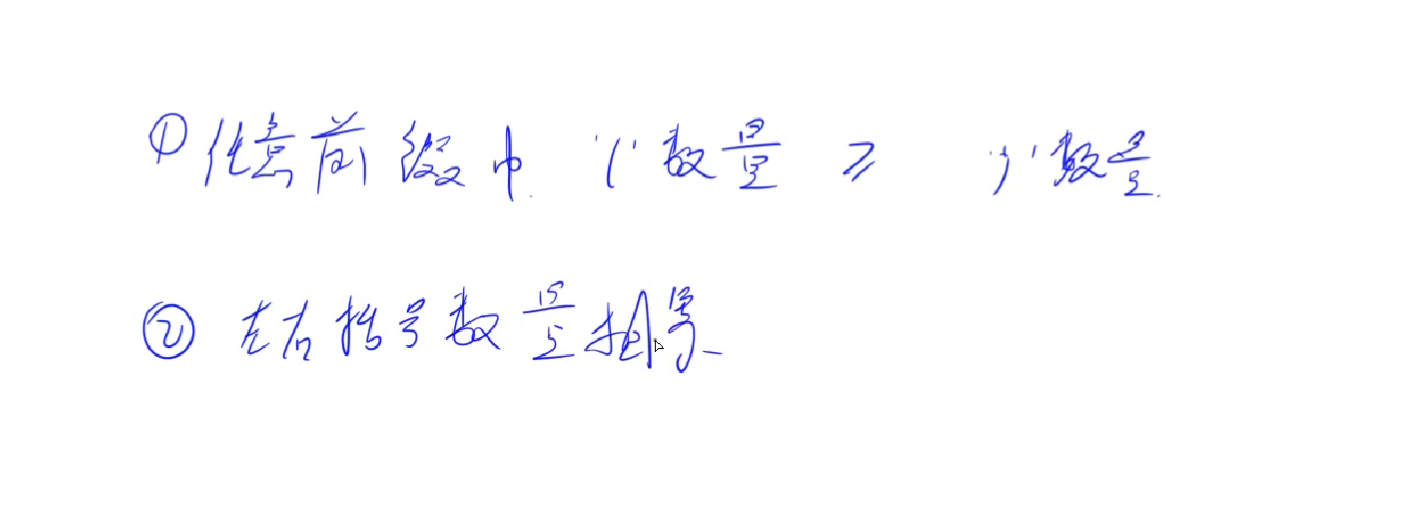 ① 任意前缀中 '(' 数量 ≥ ')' 数量.
② 左右括号数量相等